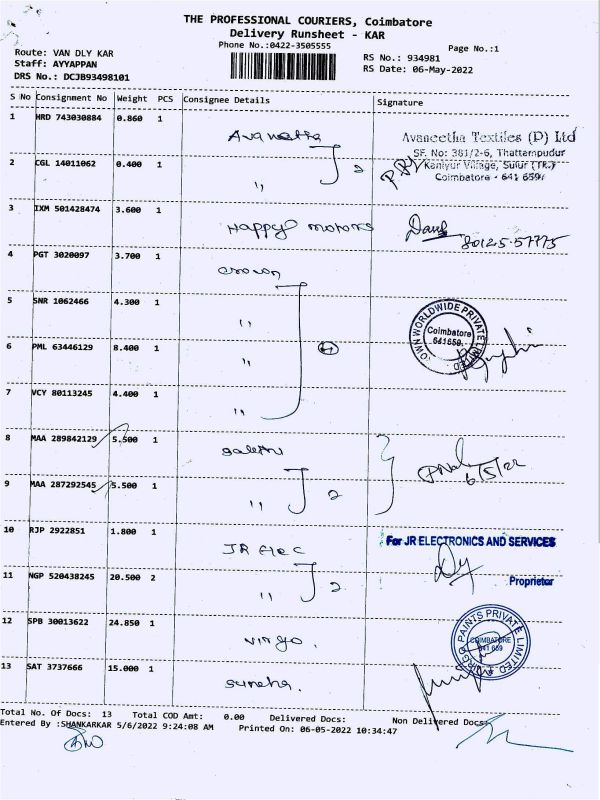 THE PROFESSIONAL COURIERS, Coimbatore
Delivery Runsheet - KAR
Phone No.:0422-3505555
Page No.:1
Route: VAN DLY KAR
RS No.: 934981
Staff: AYYAPPAN
RS Date: 06-May-2022
DRS No.: DCJB93498101
S No Consignment No Weight PCS Consignee Details Signature
1 HRD 743030884 0.860 1
Avaneetha
Avaneetha Textiles (P) Ltd
SF. No: 381/2-6, Thattampudur
2 CGL 14011062 0.400 1 " 2
Kaniyur Village, Sulur (TK.)
Coimbatore - 641 659
3 IXM 501428474 3.600 1
Happy motors
80125-57775
4 PGT 3020097 3.700 1
crown
5 SNR 1062466 4.300 1
"
OWN WORLDWIDE PRIVATE LIMITED
Coimbatore
641659
6 PML 63446129 8.400 1
" 4
7 VCY 80113245 4.400 1
"
8 MAA 289842129 5.500 1
6/5/22
9 MAA 287292545 5.500 1
" 2
10 RJP 2922851 1.800 1
JR Elec
For JR ELECTRONICS AND SERVICES
11 NGP 520438245 20.500 2
" 2
Proprietor
12 SPB 30013622 24.850 1
virgo.
VIRGO PAINTS PRIVATE LIMITED
COIMBATORE
641 659
13 SAT 3737666 15.000 1
Total No. Of Docs: 13 Total COD Amt: 0.00 Delivered Docs: Non Delivered Docs:
Entered By :SHANKARKAR 5/6/2022 9:24:08 AM Printed On: 06-05-2022 10:34:47